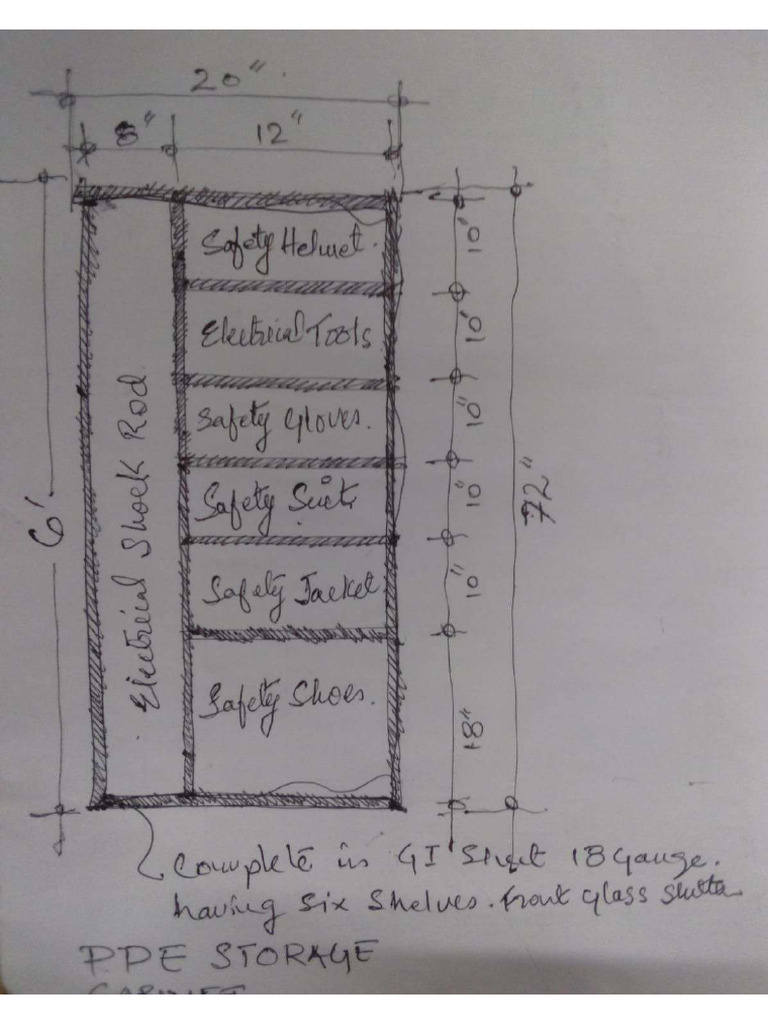 20"
8" 12"
Safety Helmet.
10"
Electrical Tools
10"
Safety Gloves.
10"
Electrical Shock Rod
6'
Safety Suit
10"
72"
Safety Jacket
10"
Safety Shoes.
18"
Complete in GI Sheet 18 Gauge.
having Six Shelves. Front Glass Shutter
PPE STORAGE
CABINET